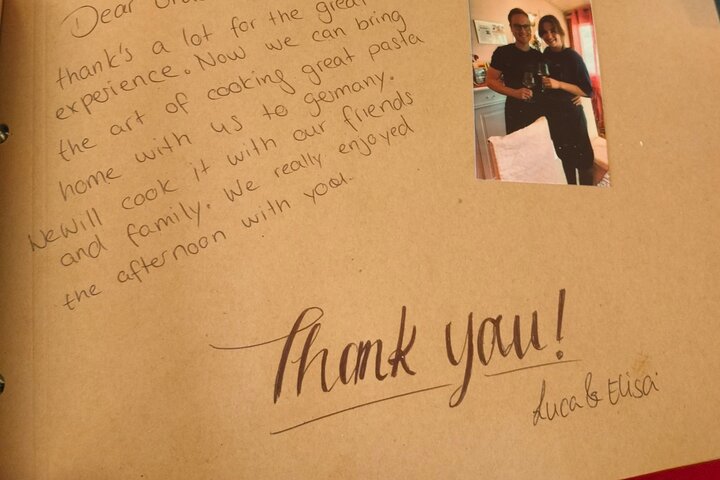 Dear
thank's a lot for the great
experience. Now we can bring
the art of cooking great pasta
home with us to germany.
We will cook it with our friends
and family. We really enjoyed
the afternoon with you.
Thank you!
Luca & Elisa